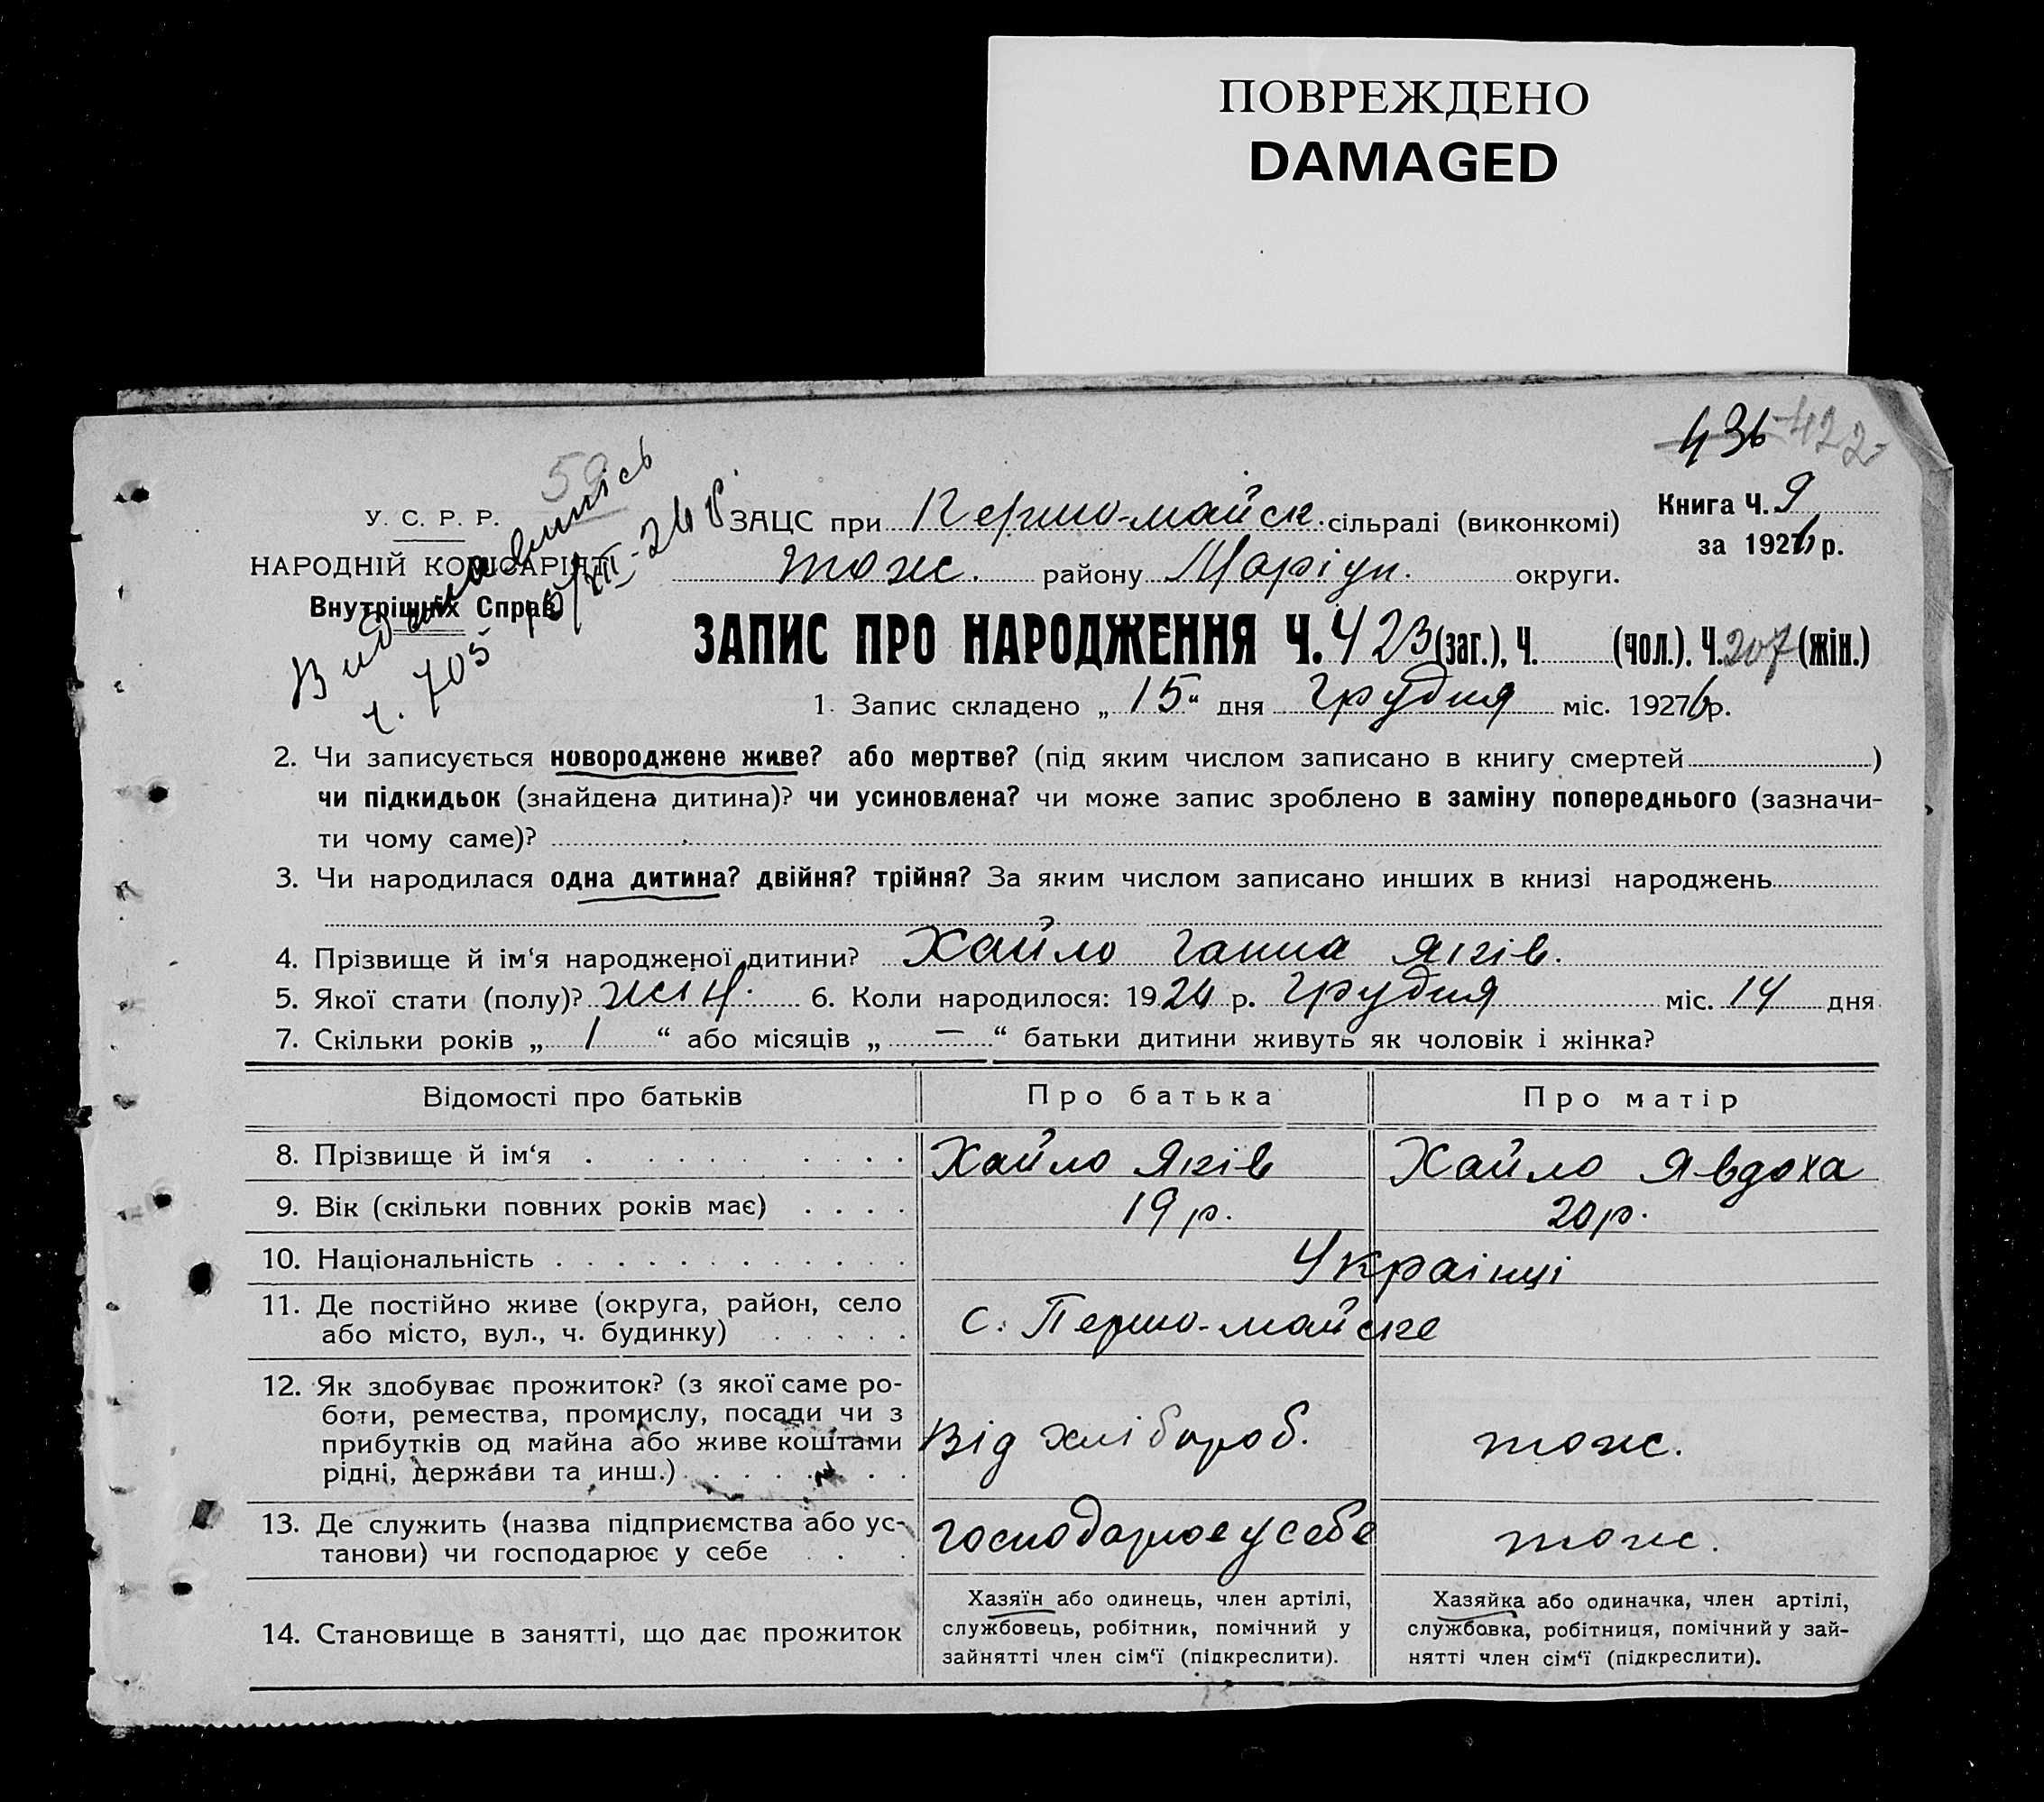 ПОВРЕЖДЕНО
DAMAGED
436 422
59
Видана виписъ
ч. 705 15/XII-26 р.
У. С. Р. Р.
НАРОДНІЙ КОМІСАРІЯТ
Внутрішніх Справ
ЗАЦС при Першо-майск. сільраді (виконкомі)
Книга Ч. 9
за 1926 р.
тож. району Маріуп. округи.
ЗАПИС ПРО НАРОДЖЕННЯ Ч. 423 (заг.), Ч. (чол.). Ч. 207 (жін.)
1. Запис складено „ 15 “ дня Грудня міс. 1926 р.
2. Чи записується новороджене живе? або мертве? (під яким числом записано в книгу смертей )
чи підкидьок (знайдена дитина)? чи усиновлена? чи може запис зроблено в заміну попереднього (зазначи-
ти чому саме)?
3. Чи народилася одна дитина? двійня? трійня? За яким числом записано инших в книзі народжень
4. Прізвище й ім‘я народженої дитини? Хайло Ганна Яків.
5. Якої стати (полу)? жін. 6. Коли народилося: 1926 р. Грудня міс. 14 дня
7. Скільки років „ 1 “ або місяців „ — “ батьки дитини живуть як чоловік і жінка?
Відомості про батьків Про батька Про матір
8. Прізвище й ім‘я Хайло Яків Хайло Явдоха
9. Вік (скільки повних років має) 19 р. 20 р.
10. Національність Українці
11. Де постійно живе (округа, район, село
або місто, вул., ч. будинку) с. Першо-майске
12. Як здобуває прожиток? (з якої саме ро-
боти, ремества, промислу, посади чи з
прибутків од майна або живе коштами
рідні, держави та инш.) Від хлібороб. тож.
13. Де служить (назва підприємства або ус-
танови) чи господарює у себе господарює у себе тож.
14. Становище в занятті, що дає прожиток
Хазяїн або одинець, член артілі,
службовець, робітник, помічний у
зайнятті член сім‘ї (підкреслити).
Хазяйка або одиначка, член артілі,
службовка, робітниця, помічний у зай-
нятті член сім‘ї (підкреслити).